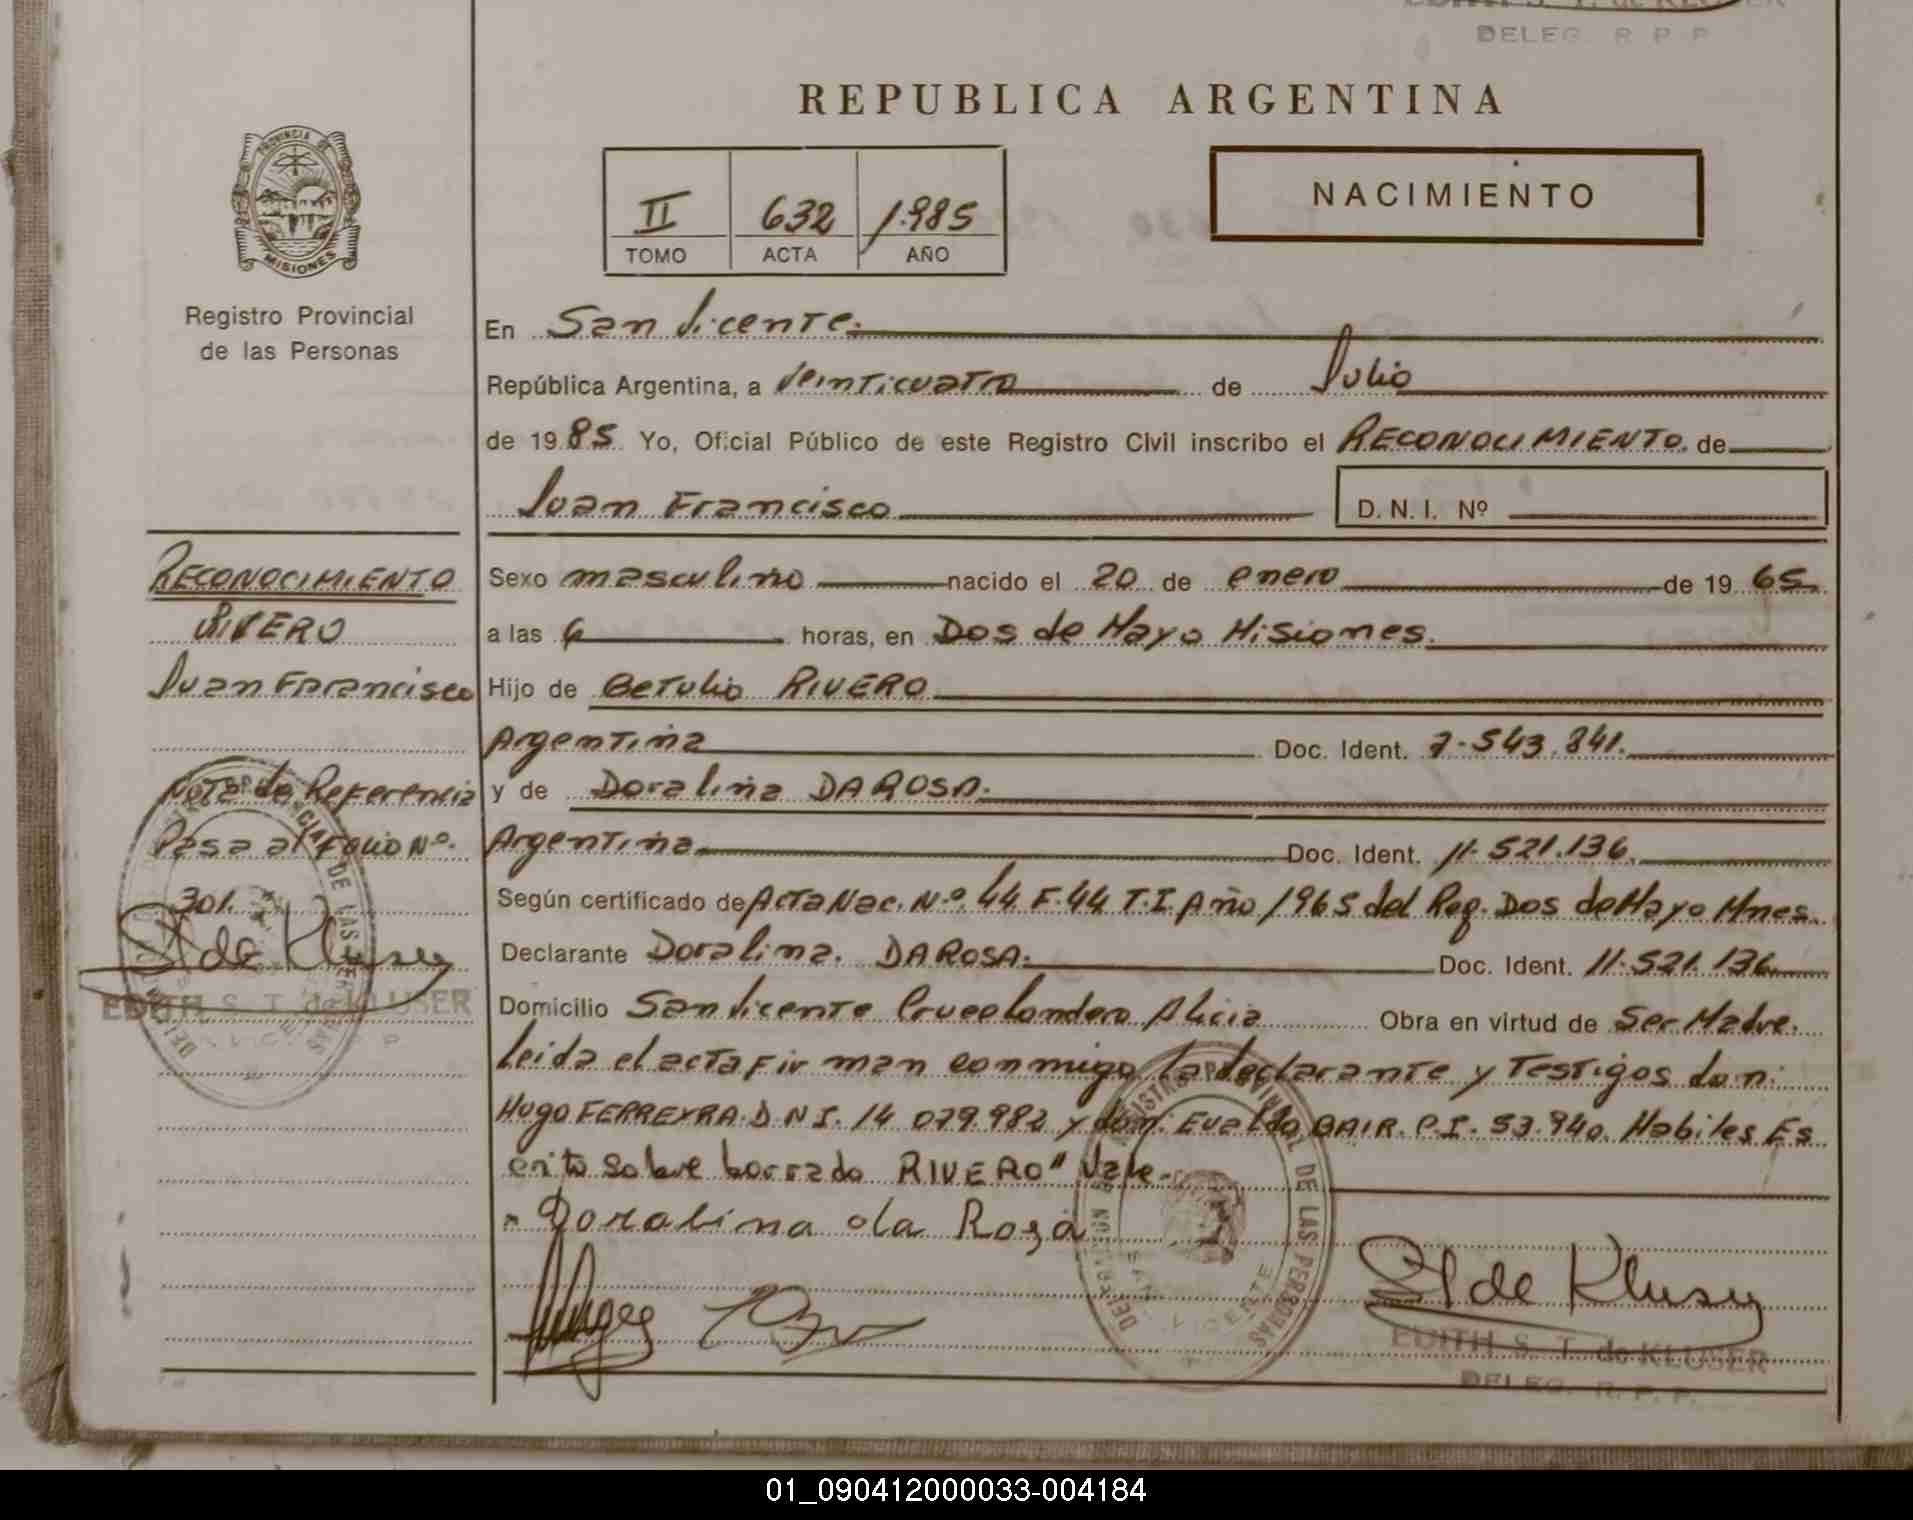 DELEG. R. P. P.
REPUBLICA ARGENTINA
PROVINCIA DE
MISIONES
Registro Provincial
de las Personas
II 632 1.985
TOMO ACTA AÑO
NACIMIENTO
En San Vicente.
República Argentina, a Veinticuatro de Julio
de 1985 Yo, Oficial Público de este Registro Civil inscribo el RECONOCIMIENTO de
Juan Francisco D. N. I. Nº
Sexo masculino nacido el 20 de enero de 1965
a las 6 horas, en Dos de Mayo Misiones.
Hijo de Getulio RIVERO
Argentina Doc. Ident. 7.543.841.
y de Doralina DA ROSA.
Argentina Doc. Ident. 11.521.136.
Según certificado de Acta Nac. Nº 44 F. 44 T. I Año 1965 del Reg. Dos de Mayo Mnes.
Declarante Doralina. DA ROSA. Doc. Ident. 11.521.136
Domicilio San Vicente Alicia Obra en virtud de Ser Madre.
Leida el acta Firman conmigo la declarante y Testigos don:
Hugo FERREYRA. D N I. 14 079.982 y don. Evaldo BAIR. C.I. 53.940. Habiles Es
crito sobre borrado RIVERO" Vale.
Doralina da Rosa
St de Kluser
EDITH S. T. de KLUSER
DELEG. R. P. P.
RECONOCIMIENTO
RIVERO
Juan Farancisco
Nota de Referencia
Pasa al Folio Nº.
301.
St de Kluser
EDITH S. T. de KLUSER
REGISTRO PROVINCIAL DE LAS PERSONAS
DELEGACION
SAN VICENTE
01_090412000033-004184